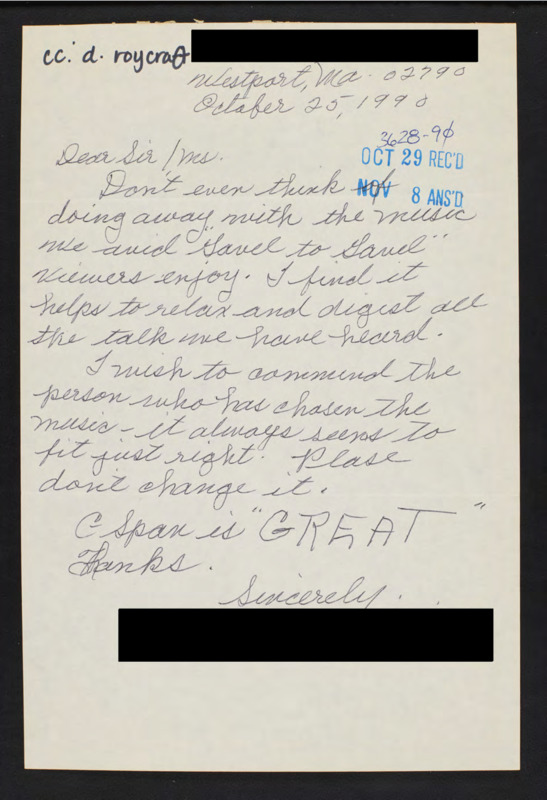 cc: d. roycraft
Westport, Ma. 02790
October 25, 1990
3628-90
Dear Sir/Ms.
OCT 29 REC'D
Don't even think of
NOV 8 ANS'D
doing away with the music
we avid "Gavel to Gavel"
viewers enjoy. I find it
helps to relax and digest all
the talk we have heard.
I wish to commend the
person who has chosen the
music - it always seems to
fit just right. Please
don't change it.
C-Span is "GREAT"
Thanks.
Sincerely.